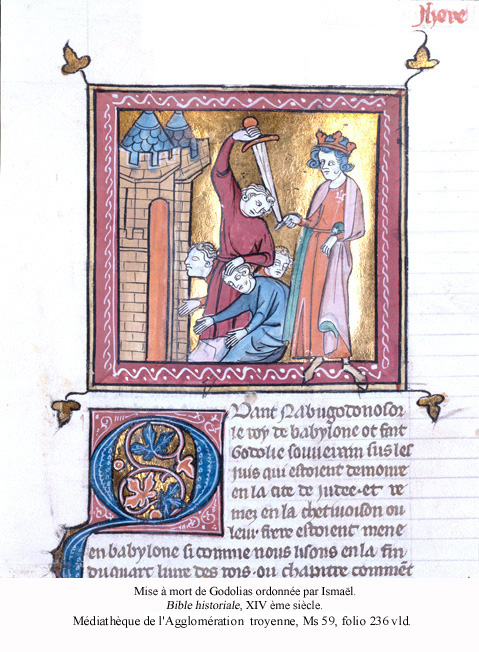 Jhere
Quant Nabugodonosor
le roy de babylone ot fait
Godolie souuerain sus les
iuis qui estoient demoure
en la cite de iudee. et re
mes en la chetiuoison ou
leur frere estoient mene
en babylone si comme nous lisons en la fin
du quart liure des rois. ou chapitre comēt
Mise à mort de Godolias ordonnée par Ismaël.
Bible historiale, XIV ème siècle.
Médiathèque de l'Agglomération troyenne, Ms 59, folio 236 vld.